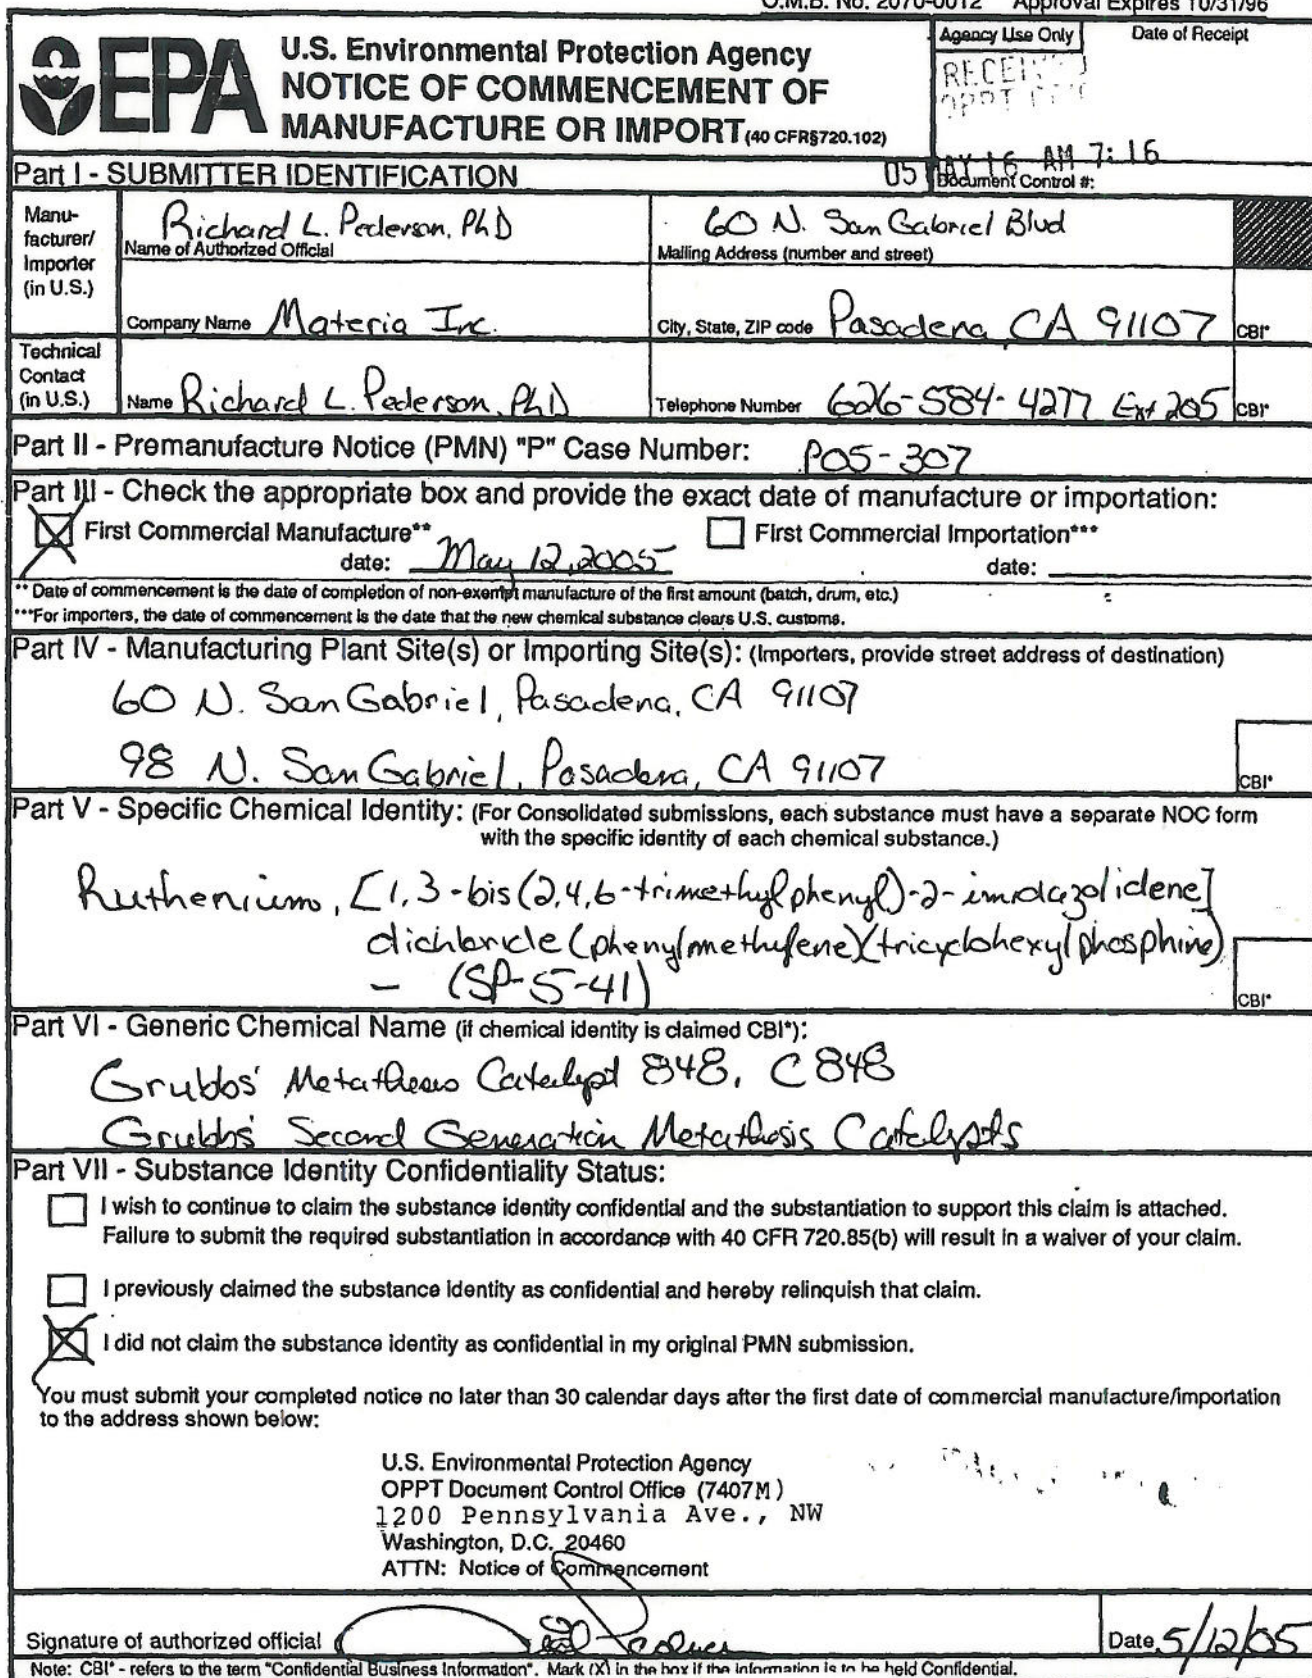 O.M.B. No. 2070-0012 Approval Expires 10/31/96
EPA
U.S. Environmental Protection Agency
NOTICE OF COMMENCEMENT OF
MANUFACTURE OR IMPORT (40 CFR§720.102)
Agency Use Only
Date of Receipt
OPPT
05 MAY 16 AM 7:16
Document Control #:
Part I - SUBMITTER IDENTIFICATION
Manu-
facturer/
Importer
(in U.S.)
Richard L. Pederson, PhD
Name of Authorized Official
60 N. San Gabriel Blvd
Mailing Address (number and street)
Company Name Materia Inc.
City, State, ZIP code Pasadena CA 91107 CBI*
Technical
Contact
(in U.S.)
Name Richard L. Pederson, PhD
Telephone Number 626-584-4277 Ext 205 CBI*
Part II - Premanufacture Notice (PMN) "P" Case Number: P05-307
Part III - Check the appropriate box and provide the exact date of manufacture or importation:
First Commercial Manufacture**
date: May 12, 2005
First Commercial Importation***
date:
** Date of commencement is the date of completion of non-exempt manufacture of the first amount (batch, drum, etc.)
***For importers, the date of commencement is the date that the new chemical substance clears U.S. customs.
Part IV - Manufacturing Plant Site(s) or Importing Site(s): (Importers, provide street address of destination)
60 N. San Gabriel, Pasadena, CA 91107
98 N. San Gabriel, Pasadena, CA 91107
CBI*
Part V - Specific Chemical Identity: (For Consolidated submissions, each substance must have a separate NOC form
with the specific identity of each chemical substance.)
Ruthenium, [1,3-bis(2,4,6-trimethylphenyl)-2-imidazolidene]
dichloride (phenylmethylene)(tricyclohexylphosphine)
- (SP-5-41)
CBI*
Part VI - Generic Chemical Name (if chemical identity is claimed CBI*):
Grubbs' Metathesis Catalyst 848, C848
Grubbs' Second Generation Metathesis Catalysts
Part VII - Substance Identity Confidentiality Status:
I wish to continue to claim the substance identity confidential and the substantiation to support this claim is attached.
Failure to submit the required substantiation in accordance with 40 CFR 720.85(b) will result in a waiver of your claim.
I previously claimed the substance identity as confidential and hereby relinquish that claim.
I did not claim the substance identity as confidential in my original PMN submission.
You must submit your completed notice no later than 30 calendar days after the first date of commercial manufacture/importation
to the address shown below:
U.S. Environmental Protection Agency
OPPT Document Control Office (7407M)
1200 Pennsylvania Ave., NW
Washington, D.C. 20460
ATTN: Notice of Commencement
Signature of authorized official
Date 5/12/05
Note: CBI* - refers to the term "Confidential Business Information". Mark (X) in the box if the information is to be held Confidential.